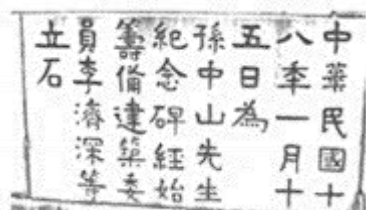 中華民國十
八年一月十
五日為
孫中山先生
紀念碑經始
籌備建築委
員李濟深等
立石